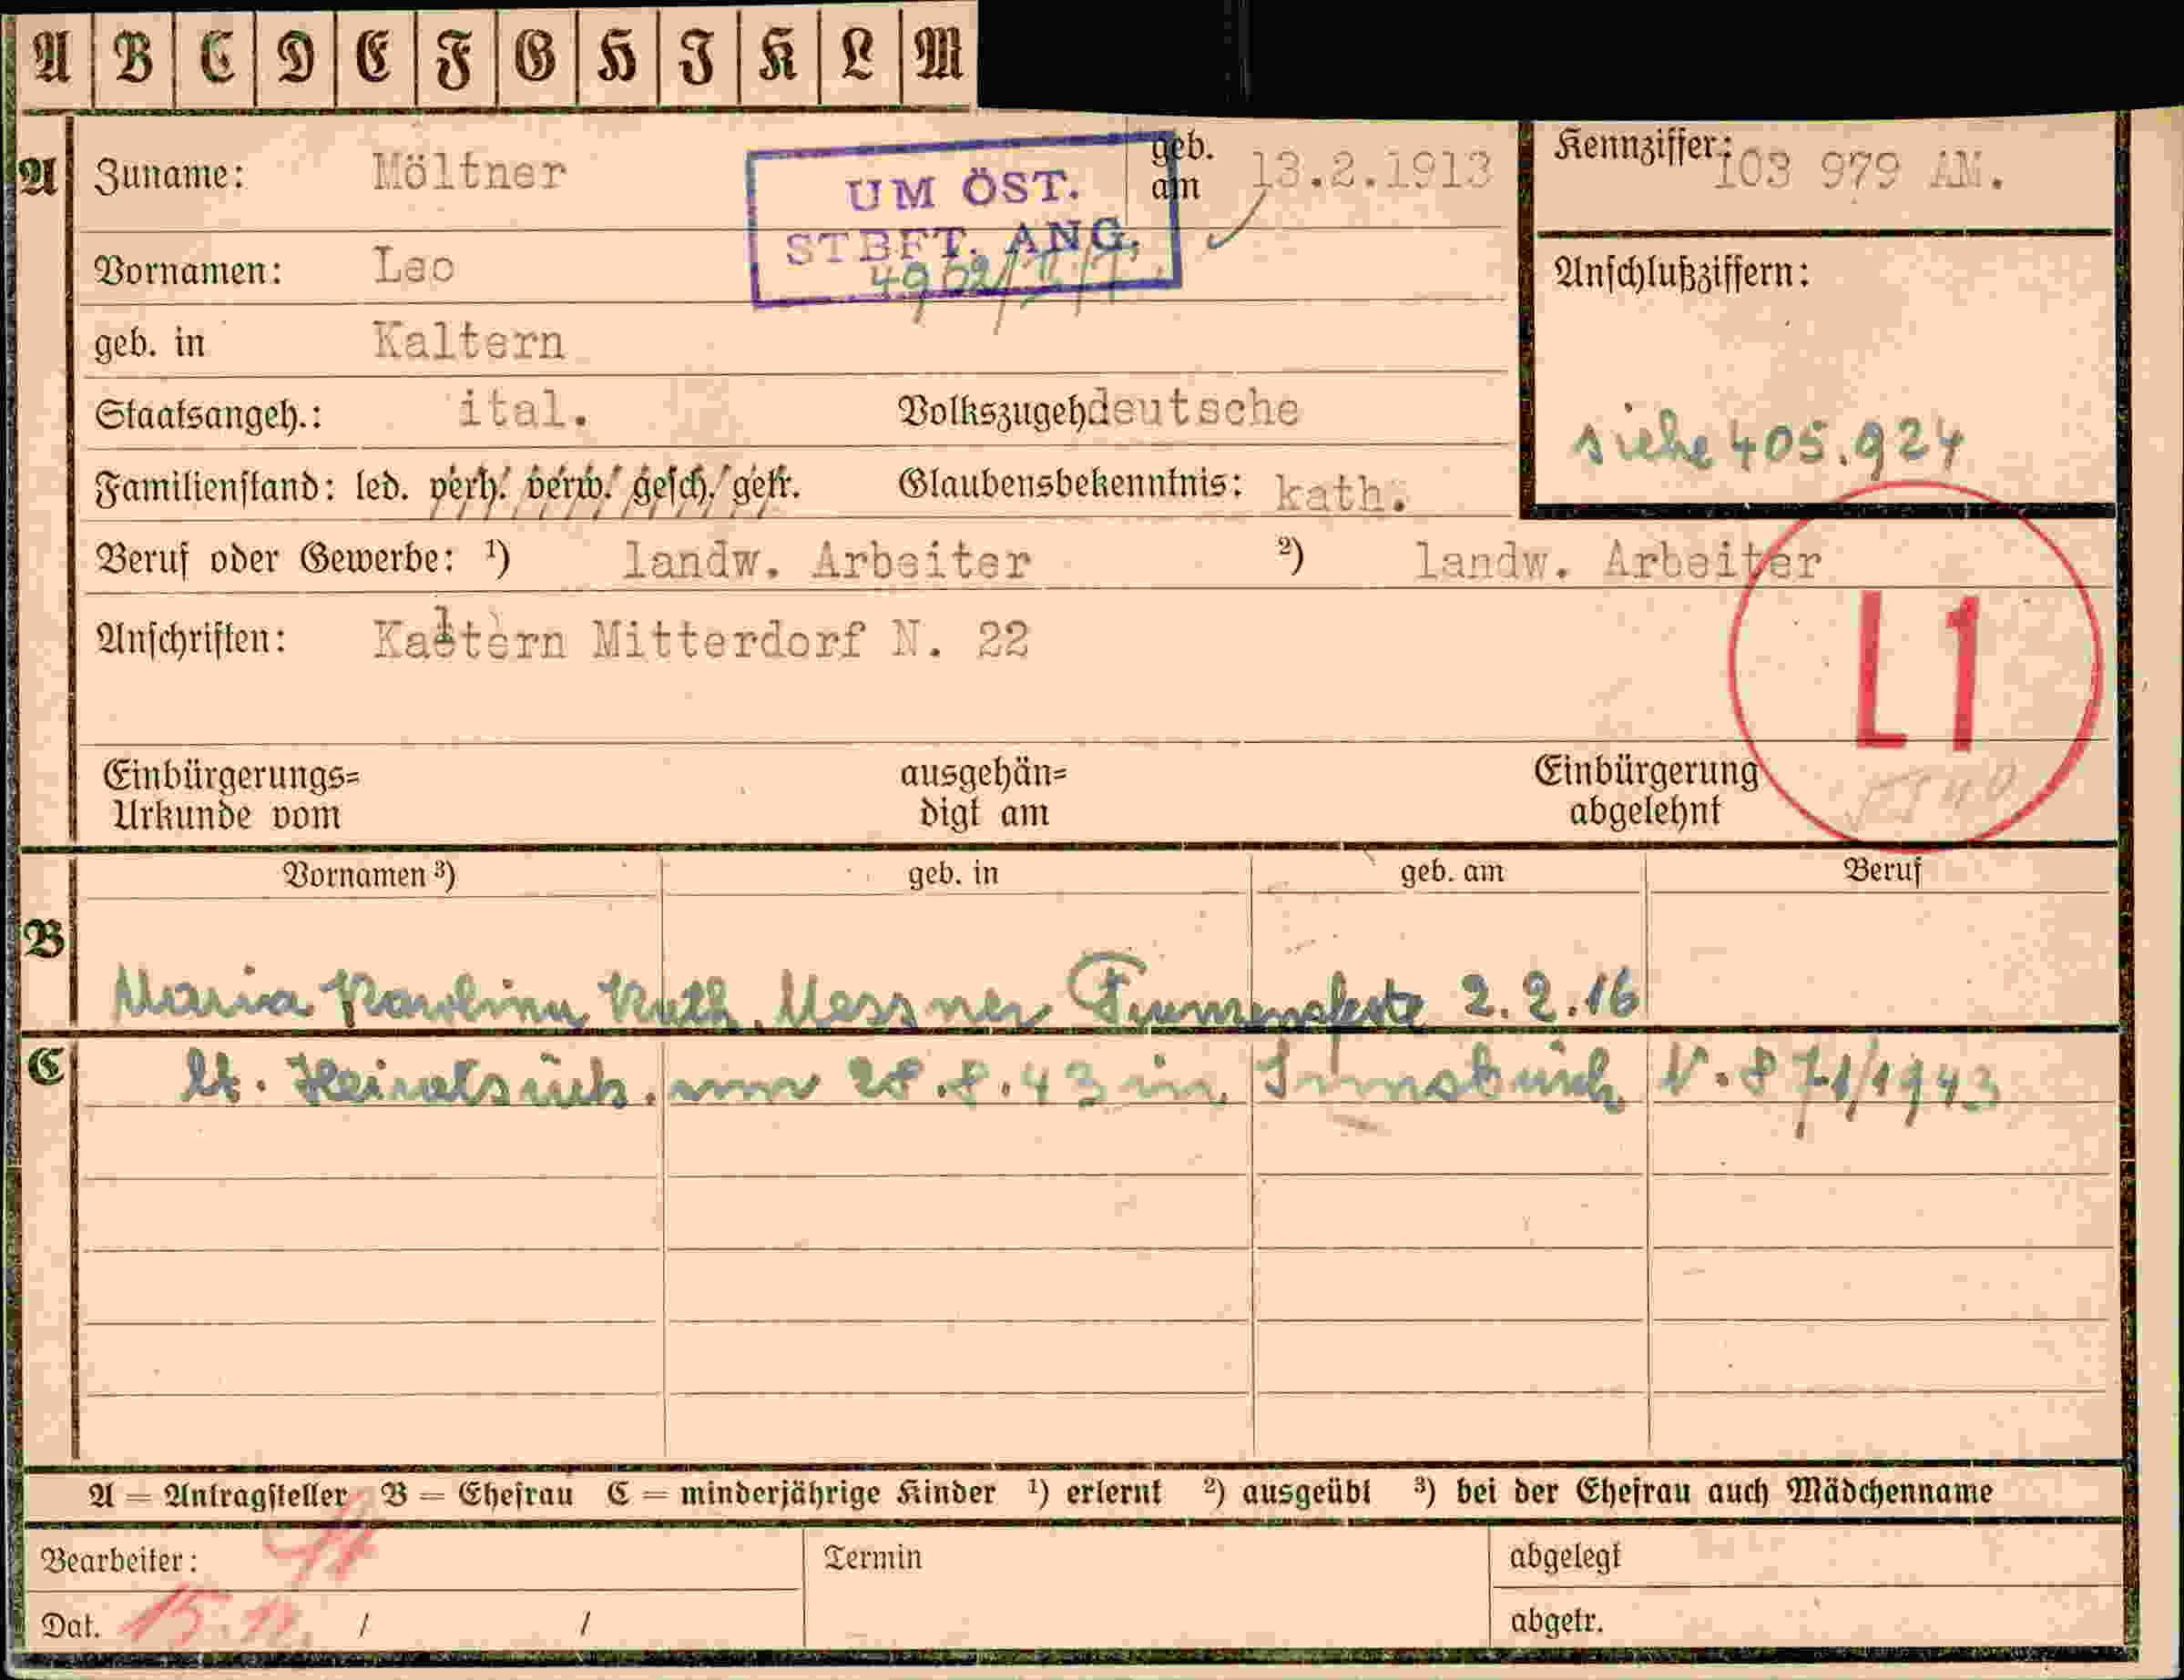 A B C D E F G H I K L M
A Zuname: Möltner geb. am 13.2.1913
UM ÖST.
STBFT. ANG.
Kennziffer: 103 979 AM.
Vornamen: Leo
Anschlußziffern:
siehe 405.924
geb. in Kaltern
Staatsangeh.: ital. Volkszugeh deutsche
Familienstand: led. verh. verw. gesch. getr. Glaubensbekenntnis: kath.
Beruf oder Gewerbe: ¹) landw. Arbeiter ²) landw. Arbeiter
Anschriften: Kaltern Mitterdorf N. 22
L1
Einbürgerungs=
Urkunde vom
ausgehän=
digt am
Einbürgerung
abgelehnt
Vornamen ³) geb. in geb. am Beruf
B
Maria Karolina Messner 2.2.16
C lt. 28.8.43 in Innsbruck N. 871/1943
A = Antragsteller B = Ehefrau C = minderjährige Kinder ¹) erlernt ²) ausgeübt ³) bei der Ehefrau auch Mädchenname
Bearbeiter: Termin abgelegt
Dat. 15. / / abgetr.